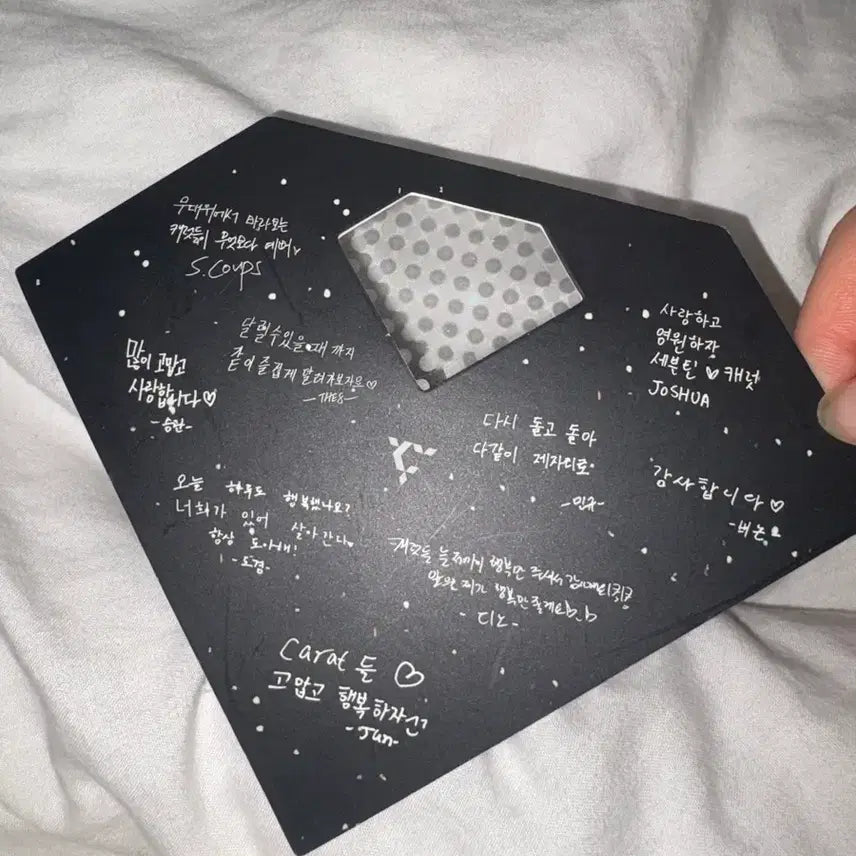 무대위에서 바라보는
캐럿들이 무엇보다 예뻐
S.COUPS
달릴수있을때 까지
같이 즐겁게 달려가보자유♡
-THE8-
많이 고맙고
사랑합니다♡
-승관-
사랑하고
영원하장
세븐틴♡캐럿
JOSHUA
다시 돌고 돌아
다같이 제자리로
-민규-
감사합니다♡
-버논-
오늘 하루도 행복했나요?
너희가 있어 살아간다
항상
-도겸-
행복만 주셔서
행복만 줄게요
-디노-
Carat 들 ♡
고맙고 행복하자
-Jun-
1 2